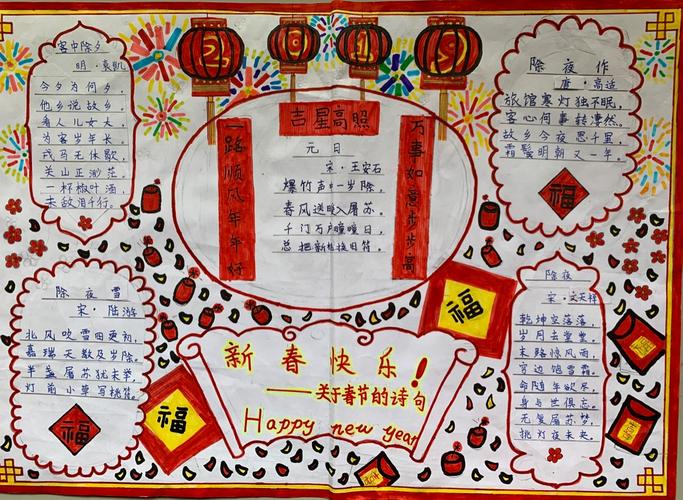 2019
客中除夕
明·袁凯
今夕为何夕,
他乡说故乡,
看人儿女大,
为客岁年长。
戎马无休歇,
关山正渺茫。
一杯椒叶酒,
未敌泪千行。
吉星高照
一路顺风年年好
万事如意步步高
元日
宋·王安石
爆竹声中一岁除,
春风送暖入屠苏。
千门万户曈曈日,
总把新桃换旧符。
除夜作
唐·高适
旅馆寒灯独不眠,
客心何事转凄然。
故乡今夜思千里,
霜鬓明朝又一年。
福
除夜雪
宋·陆游
北风吹雪四更初,
嘉瑞天教及岁除。
半盏屠苏犹未举,
灯前小草写桃符。
福
福
福
新春快乐!
——关于春节的诗句
Happy new year
除夜
宋·文天祥
乾坤空落落,
岁月去堂堂。
末路惊风雨,
穷边饱雪霜。
命随年欲尽,
身与世俱忘。
无复屠苏梦,
挑灯夜未央。